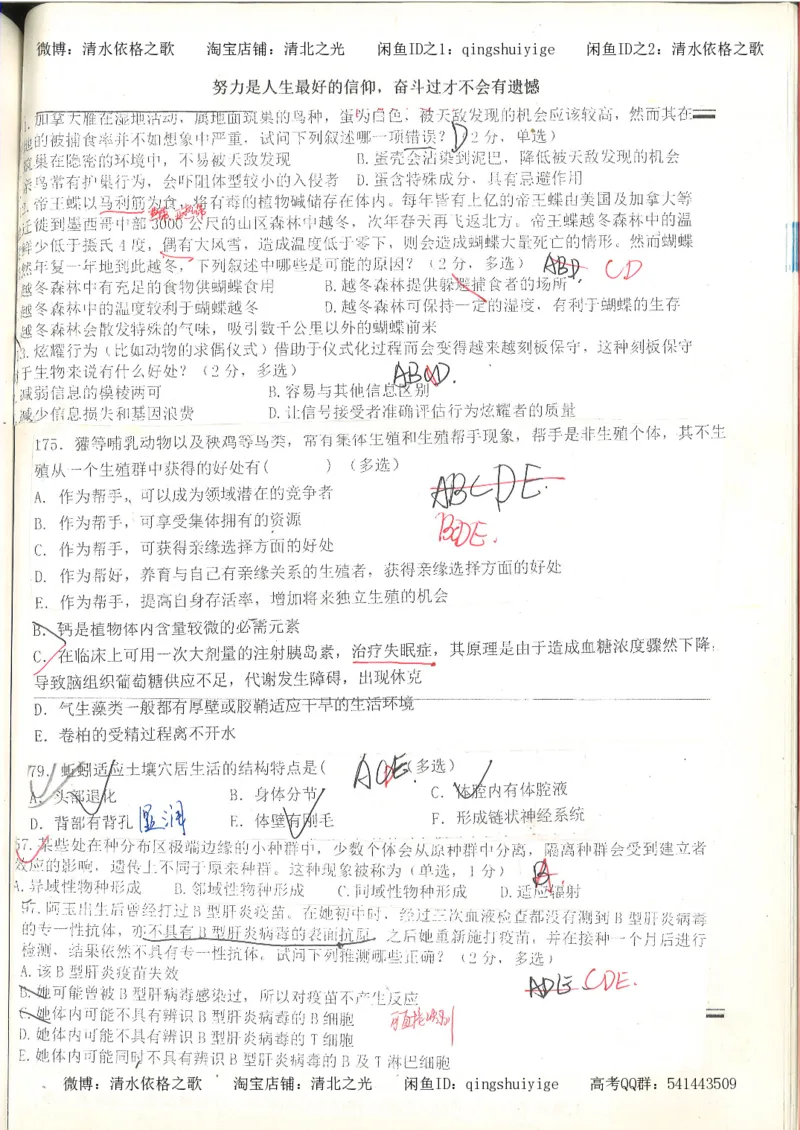 微博：清水依格之歌 淘宝店铺：清北之光 闲鱼ID之1：qingshuiyige 闲鱼ID之2：清水依格之歌
努力是人生最好的信仰，奋斗过才不会有遗憾
加拿大雁在湿地活动，属地面筑巢的鸟种，蛋为白色，被天敌发现的机会应该较高，然而其在
的被捕食率并不如想象中严重，试问下列叙述哪一项错误？D 2分，单选）
巢在隐密的环境中，不易被天敌发现 B.蛋壳会沾染到泥巴，降低被天敌发现的机会
鸟常有护巢行为，会吓阻体型较小的入侵者 D.蛋含特殊成分，具有忌避作用
帝王蝶以马利筋为食，将有毒的植物碱储存在体内。每年皆有上亿的帝王蝶由美国及加拿大等
迁徙到墨西哥中部3000公尺的山区森林中越冬，次年春天再飞返北方。帝王蝶越冬森林中的温
鲜少低于摄氏4度，偶有大风雪，造成温度低于零下，则会造成蝴蝶大量死亡的情形。然而蝴蝶
然年复一年地到此越冬，下列叙述中哪些是可能的原因？（2分，多选） ABD CD
越冬森林中有充足的食物供蝴蝶食用 B.越冬森林提供躲避捕食者的场所
越冬森林中的温度较利于蝴蝶越冬 D.越冬森林可保持一定的湿度，有利于蝴蝶的生存
越冬森林会散发特殊的气味，吸引数千公里以外的蝴蝶前来
3.炫耀行为（比如动物的求偶仪式）借助于仪式化过程而会变得越来越刻板保守，这种刻板保守
于生物来说有什么好处？（2分，多选） ABCD.
减弱信息的模棱两可 B.容易与其他信息区别
减少信息损失和基因浪费 D.让信号接受者准确评估行为炫耀者的质量
175．獾等哺乳动物以及秧鸡等鸟类，常有集体生殖和生殖帮手现象，帮手是非生殖个体，其不生
殖从一个生殖群中获得的好处有( )（多选）
A．作为帮手，可以成为领域潜在的竞争者
ABCDE.
B．作为帮手，可享受集体拥有的资源
BCDE.
C．作为帮手，可获得亲缘选择方面的好处
D．作为帮好，养育与自己有亲缘关系的生殖者，获得亲缘选择方面的好处
E．作为帮手，提高自身存活率，增加将来独立生殖的机会
B．钙是植物体内含量较微的必需元素
C．在临床上可用一次大剂量的注射胰岛素，治疗失眠症，其原理是由于造成血糖浓度骤然下降，
导致脑组织葡萄糖供应不足，代谢发生障碍，出现休克
D．气生藻类一般都有厚壁或胶鞘适应干旱的生活环境
E．卷柏的受精过程离不开水
79．蚯蚓适应土壤穴居生活的结构特点是( ACE （多选）
A．头部退化 B．身体分节 C．体腔内有体腔液
D．背部有背孔 湿润 E．体壁有刚毛 F．形成链状神经系统
57.某些处在种分布区极端边缘的小种群中，少数个体会从原种群中分离，隔离种群会受到建立者
效应的影响，遗传上不同于原来种群。这种现象被称为（单选，1分）
A.异域性物种形成 B.邻域性物种形成 C.同域性物种形成 D.适应辐射
57.阿玉出生后曾经打过B型肝炎疫苗。在她初中时，经过三次血液检查都没有测到B型肝炎病毒
的专一性抗体，亦不具有B型肝炎病毒的表面抗原。之后她重新施打疫苗，并在接种一个月后进行
检测，结果依然不具有专一性抗体，试问下列推测哪些正确？（2分，多选）
A.该B型肝炎疫苗失效 ADE CDE.
B.她可能曾被B型肝病毒感染过，所以对疫苗不产生反应
C.她体内可能不具有辨识B型肝炎病毒的B细胞
D.她体内可能不具有辨识B型肝炎病毒的T细胞
E.她体内可能同时不具有辨识B型肝炎病毒的B及T淋巴细胞
微博：清水依格之歌 淘宝店铺：清北之光 闲鱼ID：qingshuiyige 高考QQ群：541443509